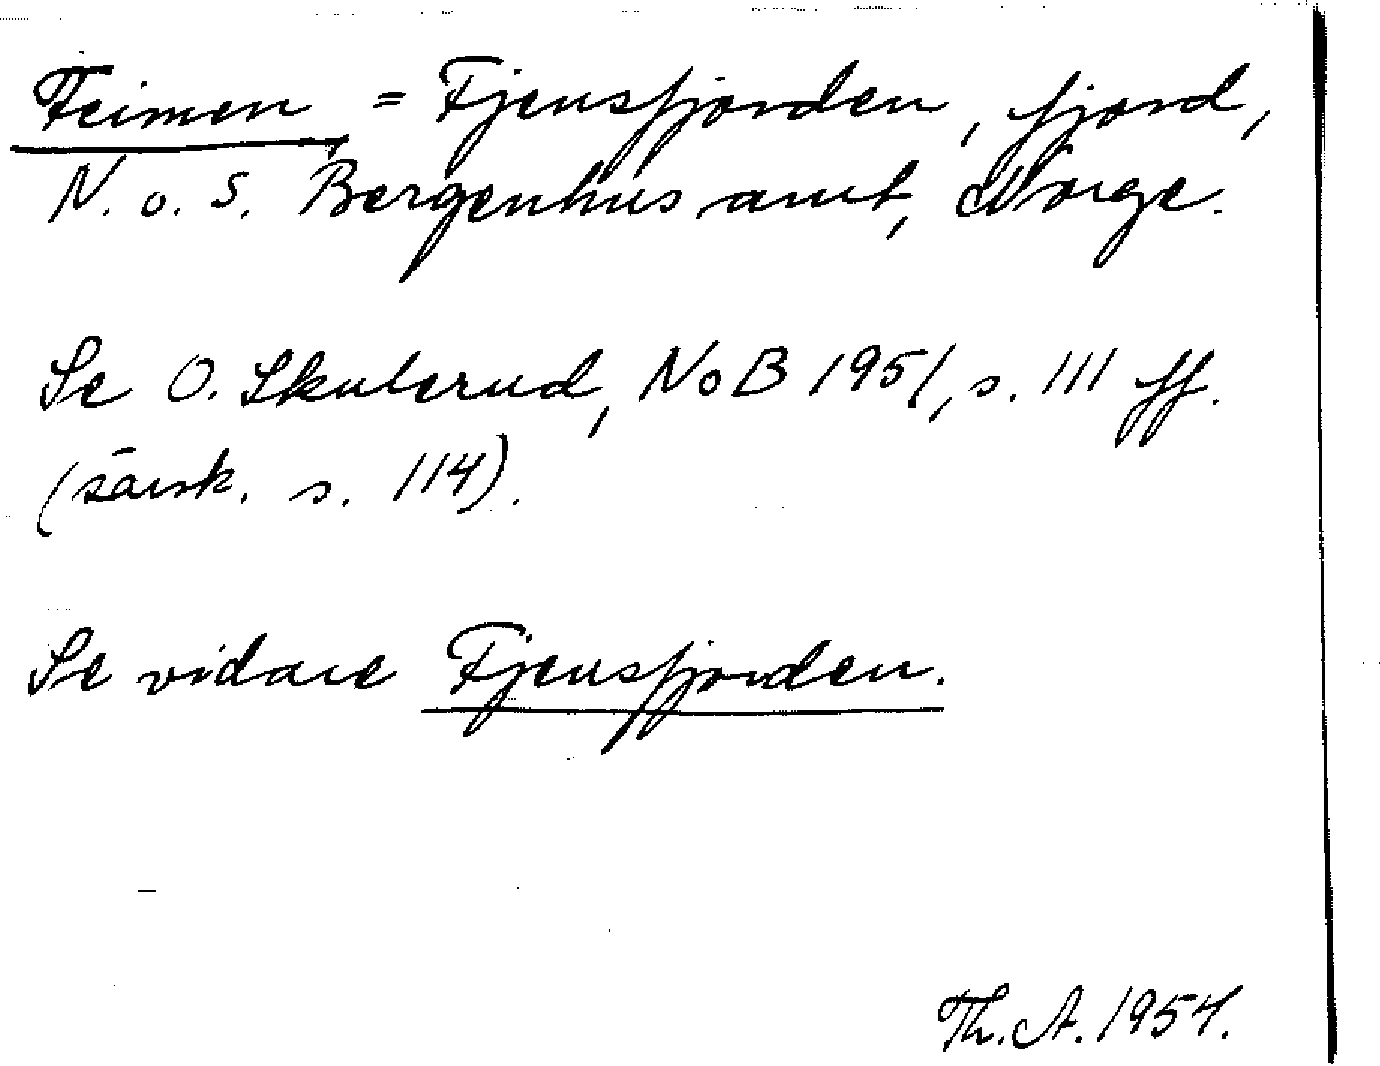 Feimen = Fjensfjorden, fjord,
N. o. S. Bergenhus amt, Norge.
Se O. Skulerud, NoB 1951, s. 111 ff.
(särsk. s. 114).
Se vidare Fjensfjorden.
Th. A. 1954.